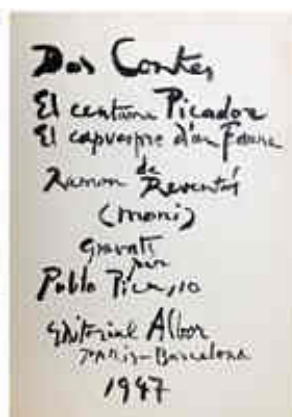 Dos Contes
El centaure Picador
El capvespre d'un Faune
de
Ramon Reventós
(Moni)
gravats
per
Pablo Picasso
Editorial Albor
Paris-Barcelona
1947